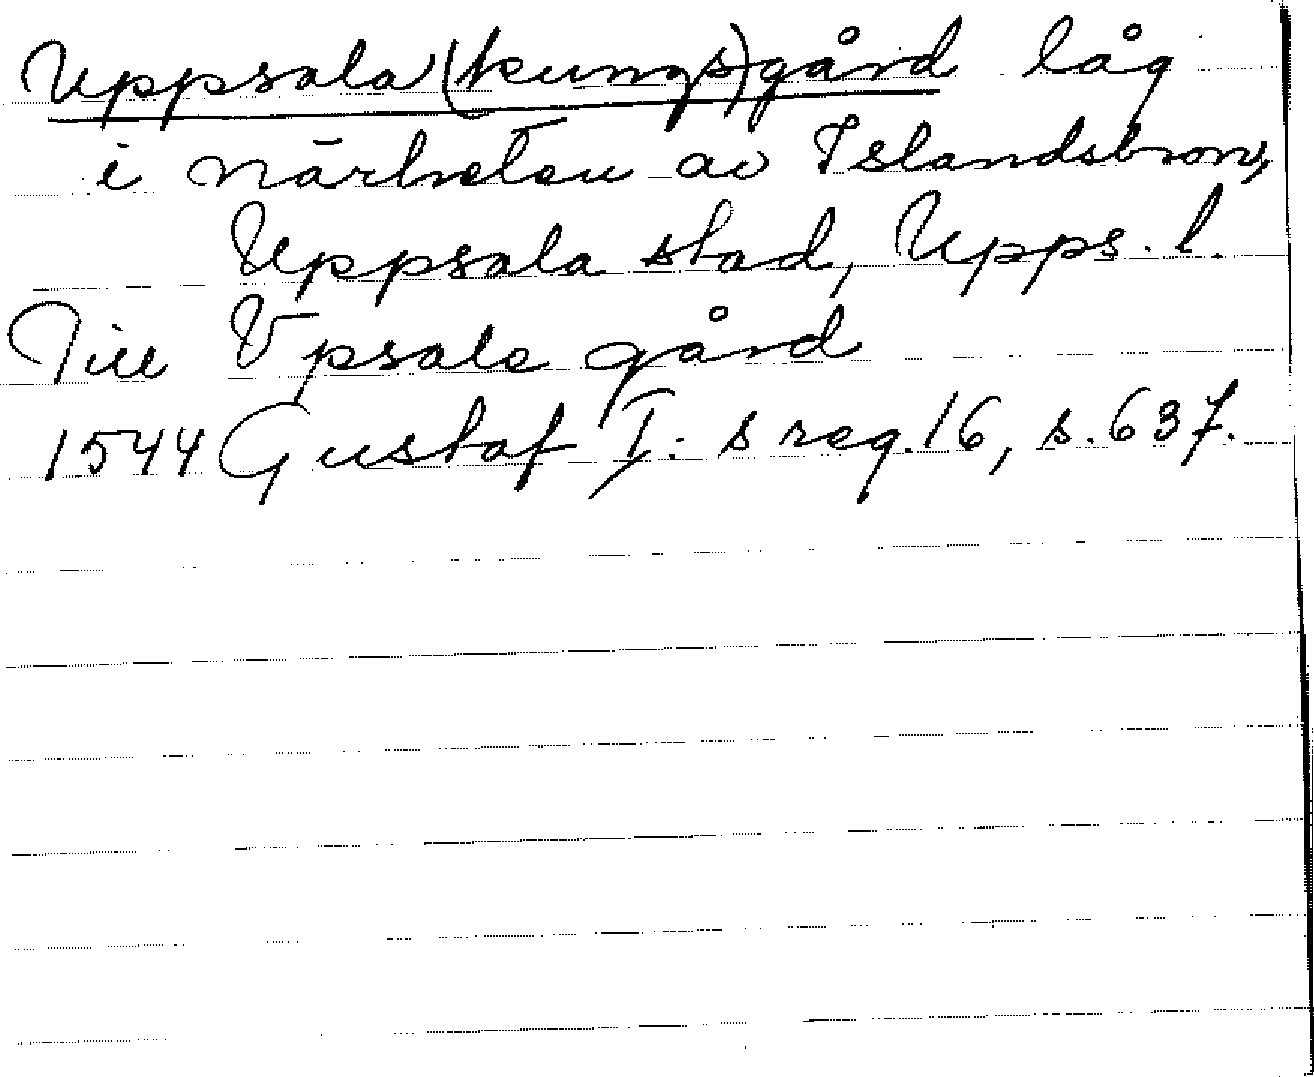 Uppsala (kungs)gård låg
i närheten av Islandsbron,
Uppsala stad, Upps. l.
Till Vpsale gård
1544 Gustaf I:s reg. 16, s. 637.